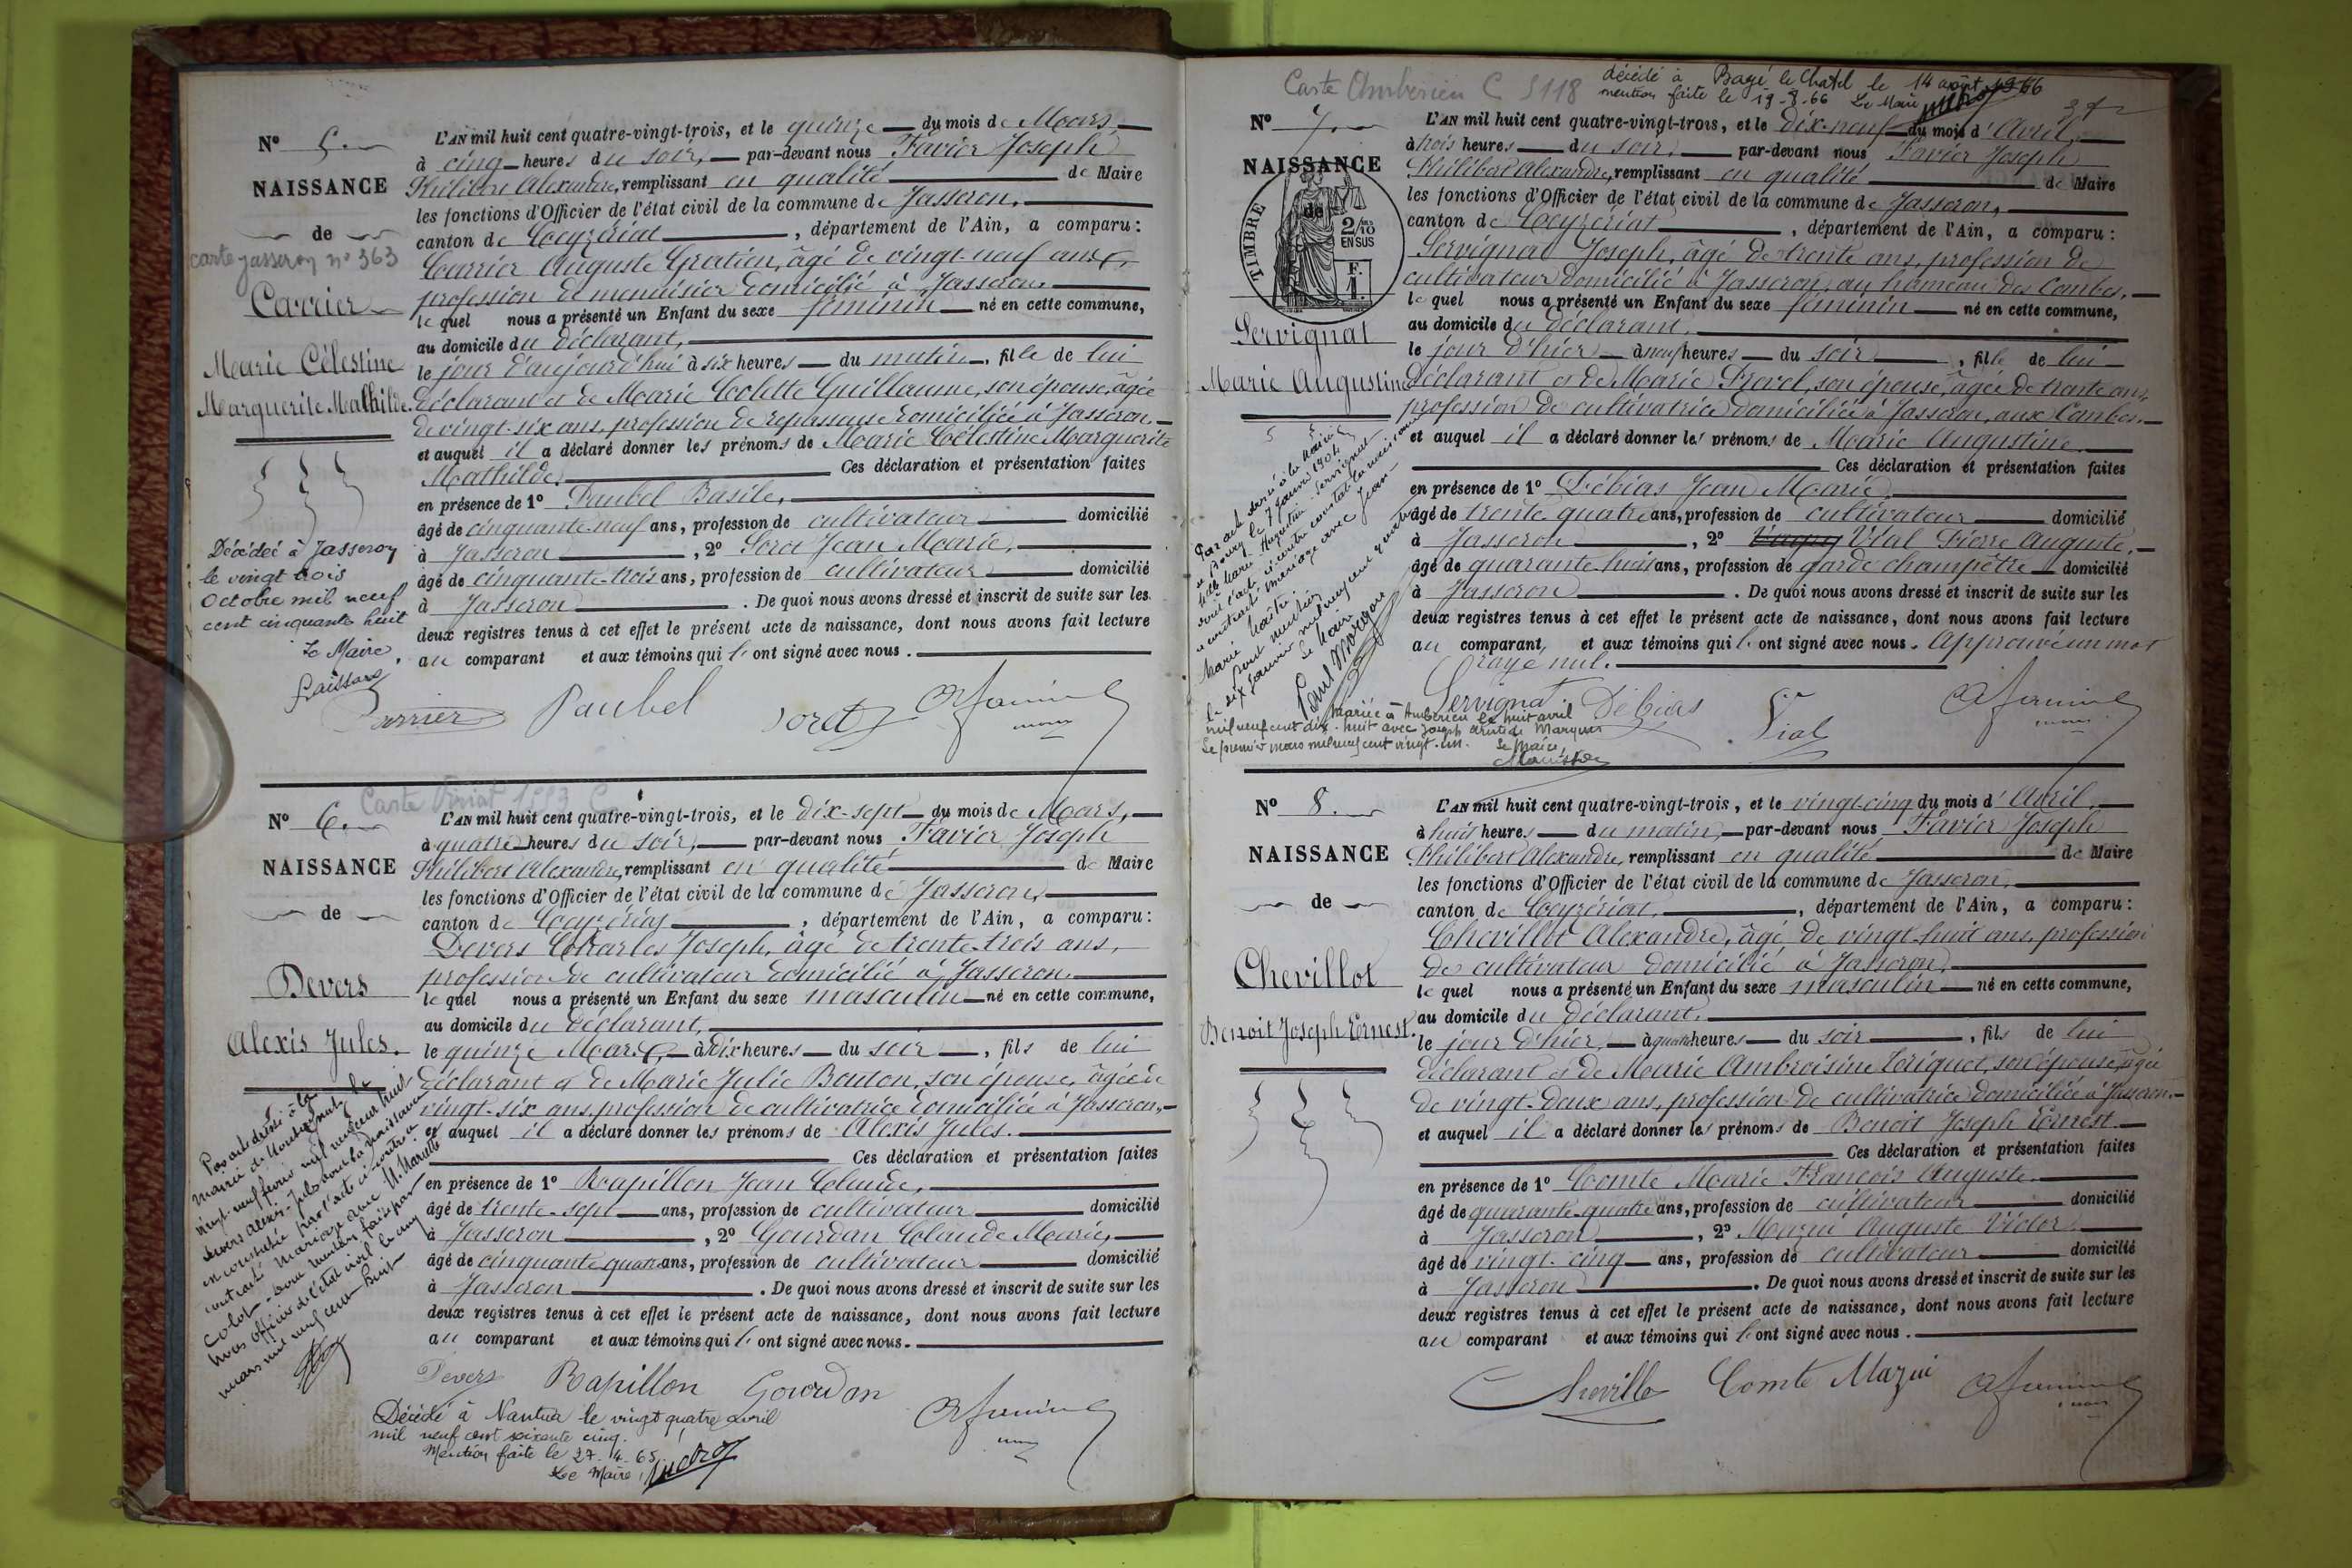 Nº 5.
NAISSANCE
de
carte Jasseron nº 363
Carrier
Marie Célestine
Marguerite Mathilde.
Décédée à Jasseron
le vingt trois
Octobre mil neuf
cent cinquante huit
Le Maire,
L'AN mil huit cent quatre-vingt-trois, et le quinze du mois de Mars,
à cinq heures du soir, par-devant nous Favier Joseph
Philibert Alexandre, remplissant en qualité de Maire
les fonctions d'Officier de l'état civil de la commune de Jasseron,
canton de Ceyzériat, département de l'Ain, a comparu:
Carrier Auguste Gratien, âgé de vingt-neuf ans,
profession de menuisier domicilié à Jasseron,
lequel nous a présenté un Enfant du sexe féminin né en cette commune,
au domicile du déclarant,
le jour d'aujourd'hui à six heures du matin, fille de lui
déclarant et de Marie Colette Guillaume, son épouse, âgée
de vingt-six ans, profession de repasseuse domiciliée à Jasseron
et auquel il a déclaré donner les prénoms de Marie Célestine Marguerite
Mathilde. Ces déclaration et présentation faites
en présence de 1º Paubel Basile,
âgé de cinquante-neuf ans, profession de cultivateur domicilié
à Jasseron, 2º Soret Jean Marie,
âgé de cinquante-trois ans, profession de cultivateur domicilié
à Jasseron. De quoi nous avons dressé et inscrit de suite sur les
deux registres tenus à cet effet le présent acte de naissance, dont nous avons fait lecture
au comparant et aux témoins qui l'ont signé avec nous.
Carrier Paubel Soret
Carte Viriat
Nº 6.
NAISSANCE
de
Devers
Alexis Jules.
Par acte dressé à la
mairie de
vingt-neuf février mil neuf cent huit
Devers Alexis-Jules dont la naissance
est constatée par l'acte ci-contre a
contracté mariage avec
Colot. Dont mention faite par
nous officier de l'état civil le cinq
mars mil neuf cent huit
L'AN mil huit cent quatre-vingt-trois, et le dix-sept du mois de Mars,
à quatre heures du soir, par-devant nous Favier Joseph
Philibert Alexandre, remplissant en qualité de Maire
les fonctions d'Officier de l'état civil de la commune de Jasseron,
canton de Ceyzériat, département de l'Ain, a comparu:
Devers Charles Joseph, âgé de trente-trois ans,
profession de cultivateur domicilié à Jasseron.
lequel nous a présenté un Enfant du sexe masculin né en cette commune,
au domicile du déclarant,
le quinze Mars, à dix heures du soir, fils de lui
déclarant et de Marie Julie Bouton, son épouse, âgée de
vingt-six ans, profession de cultivatrice domiciliée à Jasseron,
et auquel il a déclaré donner les prénoms de Alexis Jules.
Ces déclaration et présentation faites
en présence de 1º Rapillon Jean Claude,
âgé de trente-sept ans, profession de cultivateur domicilié
à Jasseron, 2º Gourdan Claude Marie,
âgé de cinquante quatre ans, profession de cultivateur domicilié
à Jasseron. De quoi nous avons dressé et inscrit de suite sur les
deux registres tenus à cet effet le présent acte de naissance, dont nous avons fait lecture
au comparant et aux témoins qui l'ont signé avec nous.
Devers Rapillon Gourdan
Décédé à Nantua le vingt quatre avril
mil neuf cent soixante cinq.
Mention faite le 27-4-65
Le Maire,
Carte Ambérieu C 5118
décédé à Bagé le Chatel le 14 août 1966
mention faite le 19-8-66 Le Maire
Nº 7.
NAISSANCE
de
TIMBRE
2/10
EN SUS
F.
1.
Servignat
Marie Augustine
Par acte dressé à la mairie
de Bourg le 7 janvier 1904
Marie Augustine Servignat
dont l'acte ci-contre constate la naissance
a contracté mariage avec Jean-
Marie
dont mention
janvier mil neuf cent quatre
Le Maire
Mariée à Ambérieu le huit avril
mil neuf cent dix-huit avec Joseph Aristide Marquis
Le premier mars mil neuf cent vingt-un.
Le Maire,
L'AN mil huit cent quatre-vingt-trois, et le dix-neuf du mois d'Avril,
à trois heures du soir, par-devant nous Favier Joseph
Philibert Alexandre, remplissant en qualité de Maire
les fonctions d'Officier de l'état civil de la commune de Jasseron,
canton de Ceyzériat, département de l'Ain, a comparu:
Servignat Joseph, âgé de trente ans, profession de
cultivateur domicilié à Jasseron, au hameau des Combes,
lequel nous a présenté un Enfant du sexe féminin né en cette commune,
au domicile du déclarant,
le jour d'hier à neuf heures du soir, fille de lui
déclarant et de Marie Frevel, son épouse, âgée de trente ans,
profession de cultivatrice domiciliée à Jasseron, aux Combes,
et auquel il a déclaré donner les prénoms de Marie Augustine.
Ces déclaration et présentation faites
en présence de 1º Débias Jean Marie
âgé de trente quatre ans, profession de cultivateur domicilié
à Jasseron, 2º Vial Pierre Auguste,
âgé de quarante-huit ans, profession de garde champêtre domicilié
à Jasseron. De quoi nous avons dressé et inscrit de suite sur les
deux registres tenus à cet effet le présent acte de naissance, dont nous avons fait lecture
au comparant, et aux témoins qui l'ont signé avec nous. Approuvé un mot
rayé nul.
Servignat Débias Vial
Nº 8.
NAISSANCE
de
Chevillot
Benoit Joseph Ernest.
L'AN mil huit cent quatre-vingt-trois, et le vingt-cinq du mois d'Avril,
à huit heures du matin, par-devant nous Favier Joseph
Philibert Alexandre, remplissant en qualité de Maire
les fonctions d'Officier de l'état civil de la commune de Jasseron,
canton de Ceyzériat, département de l'Ain, a comparu:
Chevillot Alexandre, âgé de vingt-huit ans, profession
de cultivateur domicilié à Jasseron,
lequel nous a présenté un Enfant du sexe masculin né en cette commune,
au domicile du déclarant,
le jour d'hier, à quatre heures du soir, fils de lui
déclarant et de Marie Ambroisine Loriquet, son épouse, âgée
de vingt-deux ans, profession de cultivatrice domiciliée à Jasseron.
et auquel il a déclaré donner les prénoms de Benoit Joseph Ernest.
Ces déclaration et présentation faites
en présence de 1º Comte Marie François Auguste
âgé de quarante-quatre ans, profession de cultivateur domicilié
à Jasseron, 2º Mazui Auguste Victor
âgé de vingt-cinq ans, profession de cultivateur domicilié
à Jasseron. De quoi nous avons dressé et inscrit de suite sur les
deux registres tenus à cet effet le présent acte de naissance, dont nous avons fait lecture
au comparant et aux témoins qui l'ont signé avec nous.
Chevillot Comte Mazui